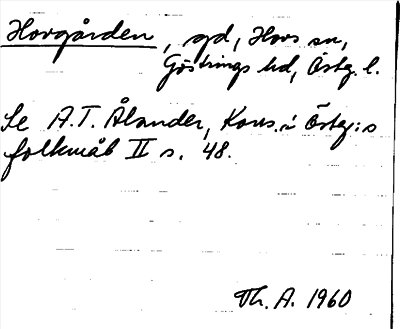 Hovgården, gd, Hovs sn,
Göstrings hd, Östg. l.
Se A.T. Ålander, Kons. i Östg:s
folkmål II s. 48.
Th. A. 1960